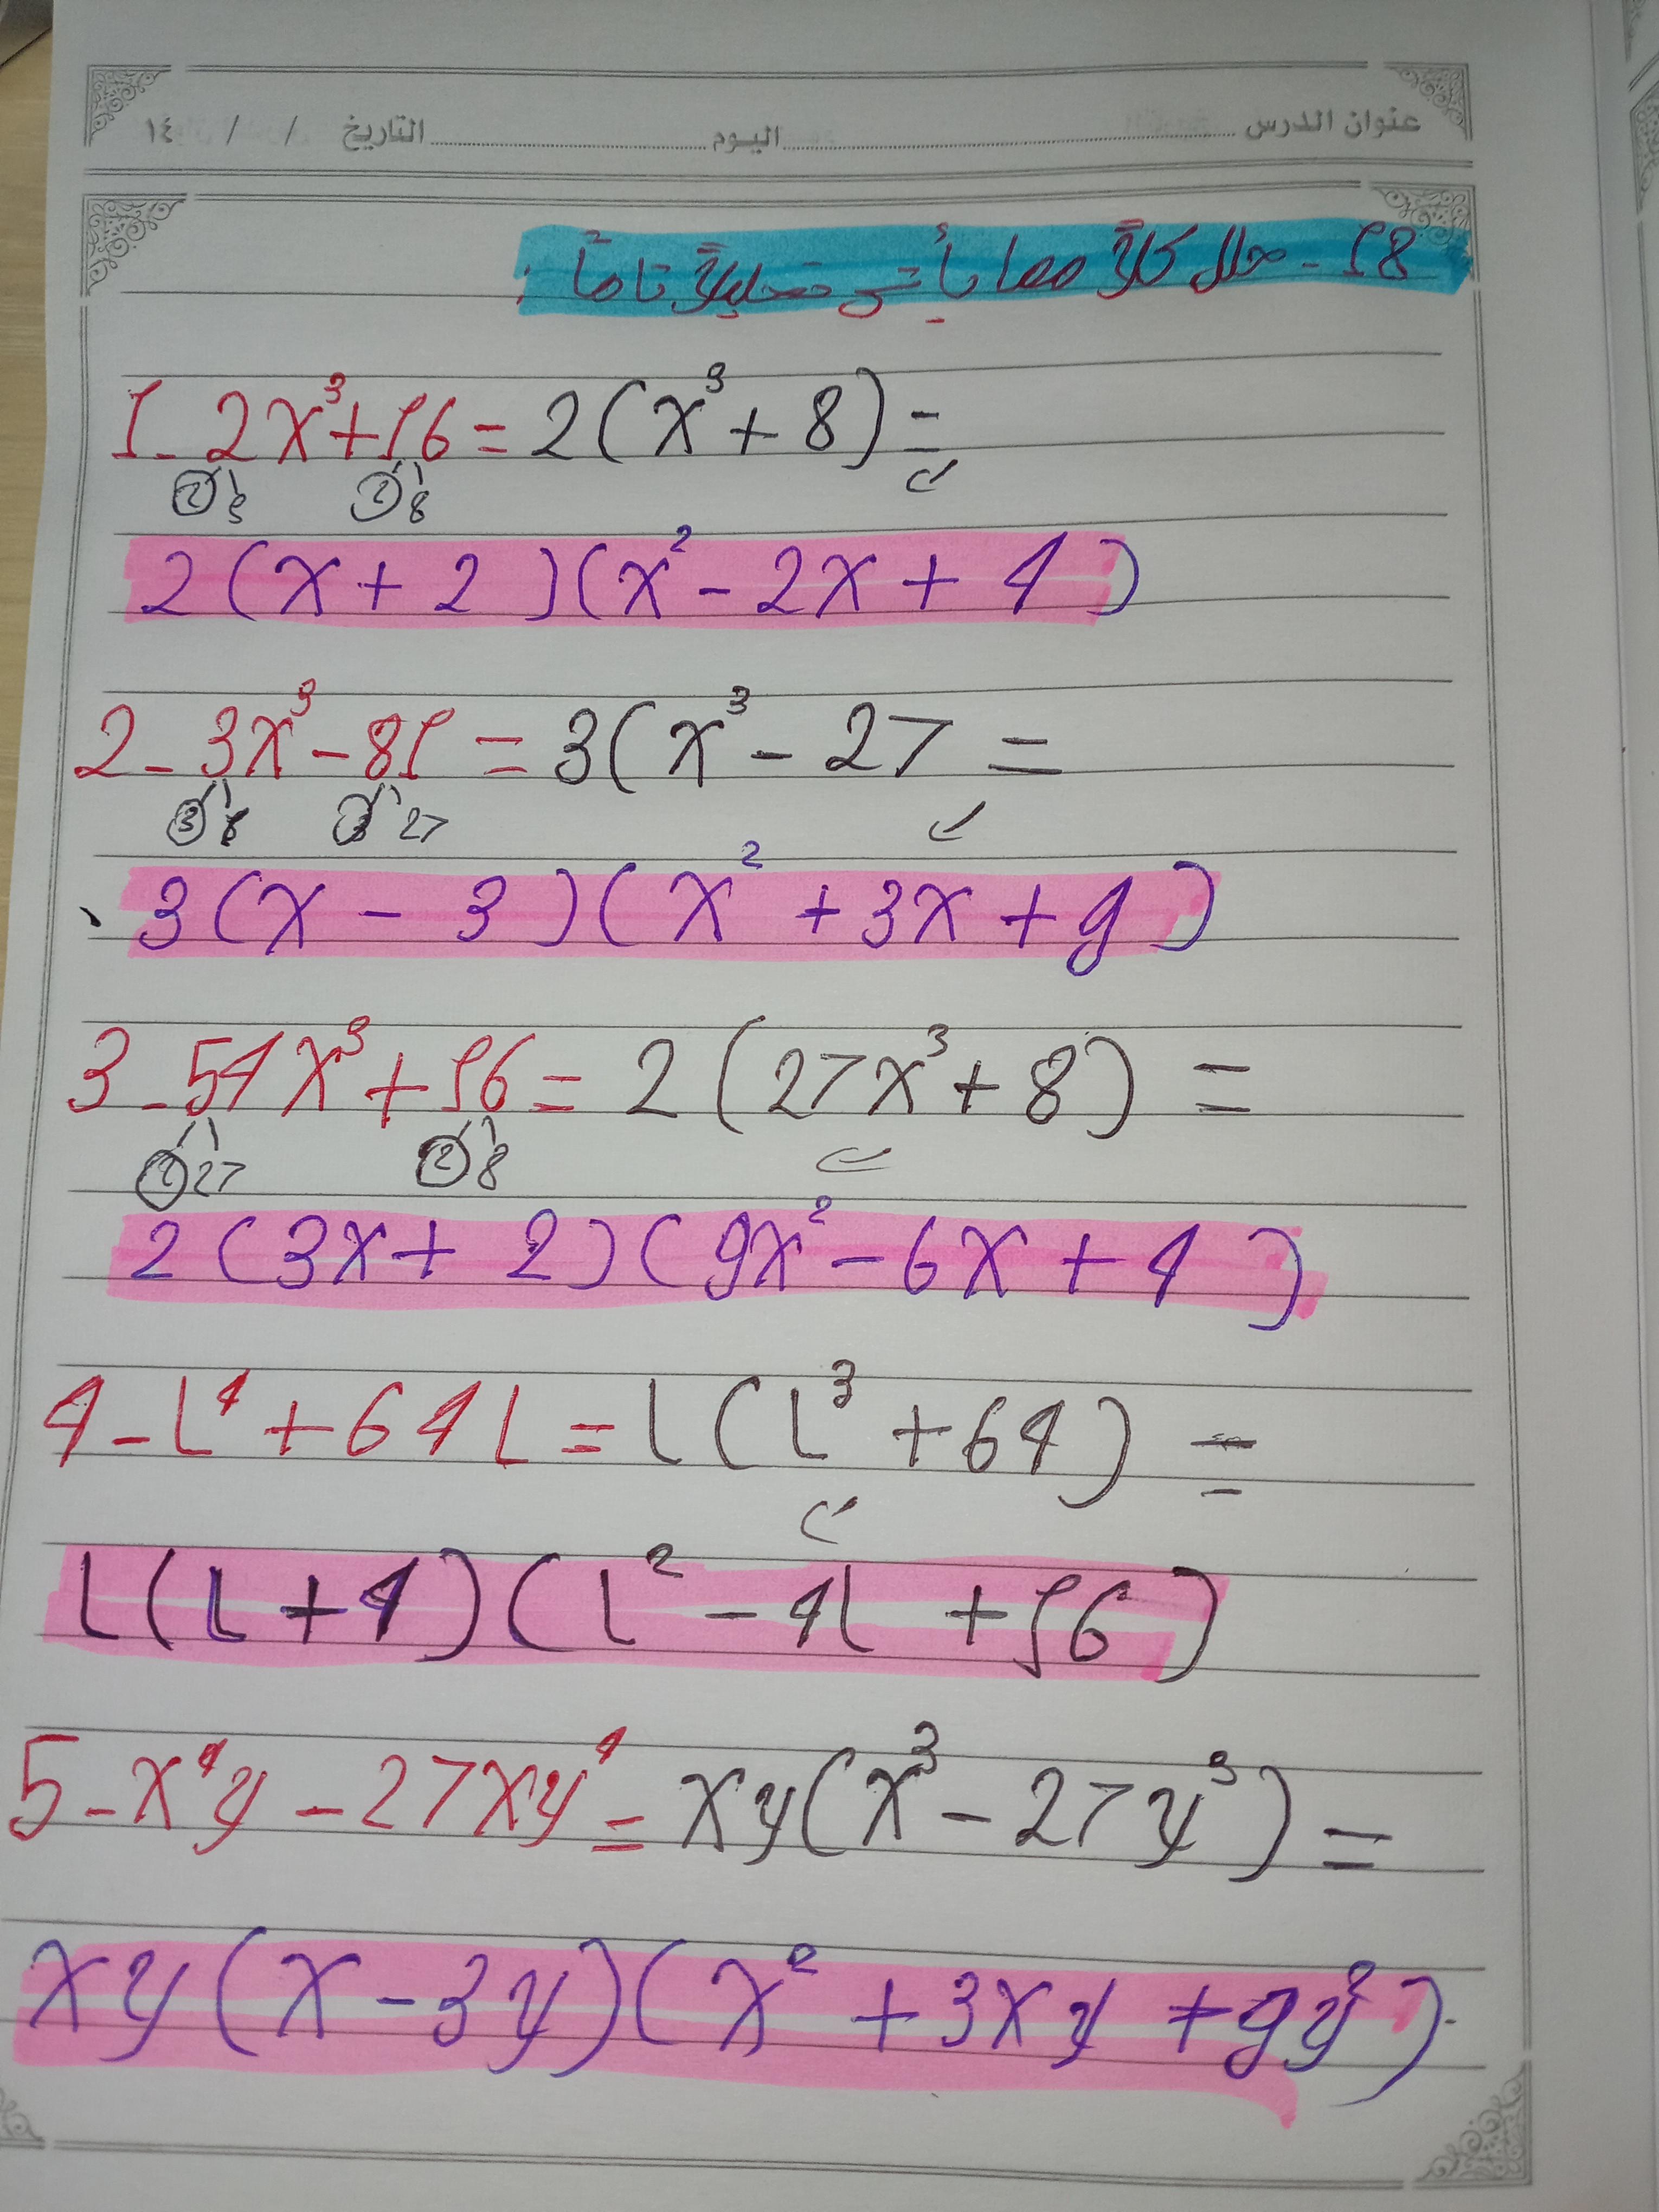 عنوان الدرس ........ اليوم ........ التاريخ / / ١٤
18 - حلل كلاً مما يأتي تحليلاً تاماً :
1 - 2x³ + 16 = 2(x³ + 8) =
2 8
2(x + 2)(x² - 2x + 4)
2 - 3x³ - 81 = 3(x³ - 27 =
3 27
3(x - 3)(x² + 3x + 9)
3 - 54x³ + 16 = 2(27x³ + 8) =
2 27 2 8
2(3x + 2)(9x² - 6x + 4)
4 - L⁴ + 64L = L(L³ + 64) =
L(L + 4)(L² - 4L + 16)
5 - x⁴y - 27xy⁴ = xy(x³ - 27y³) =
xy(x - 3y)(x² + 3xy + 9y²)